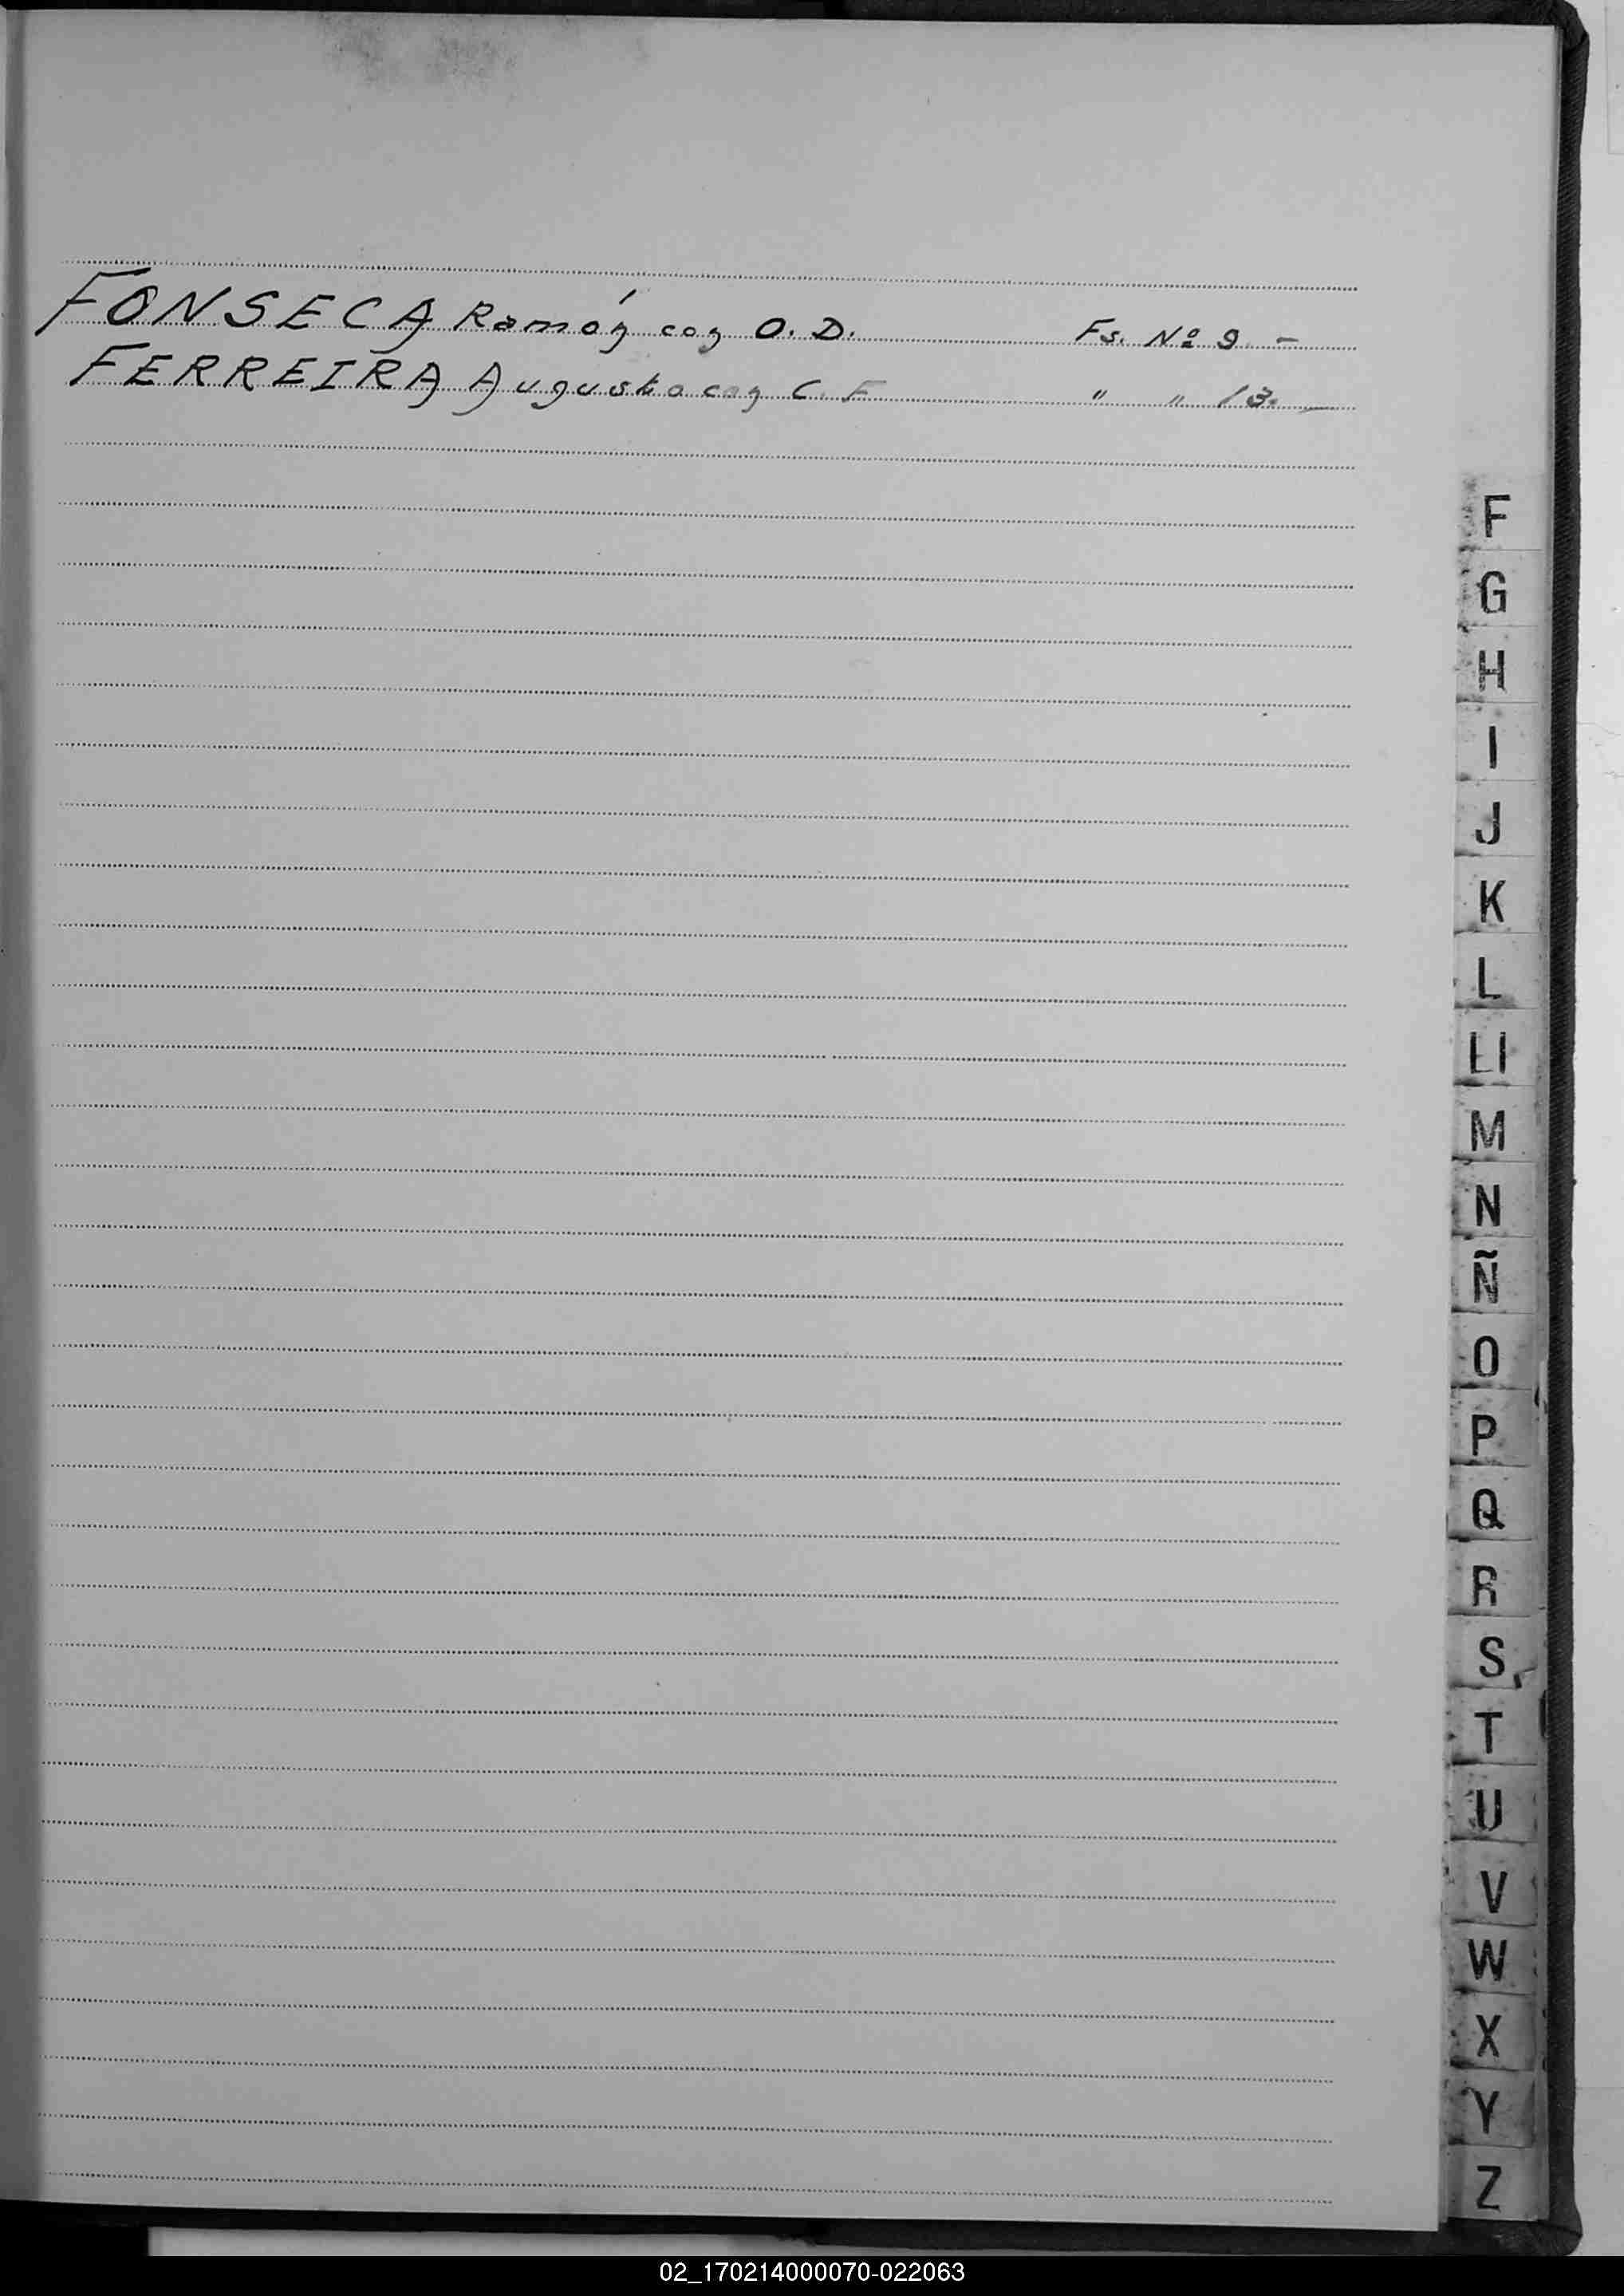 FONSECA Ramón con O. D. Fs. Nº 9 -
FERREIRA Augusto con C. F " " 13. -
F
G
H
I
J
K
L
Ll
M
N
Ñ
O
P
Q
R
S
T
U
V
W
X
Y
Z
02_170214000070-022063